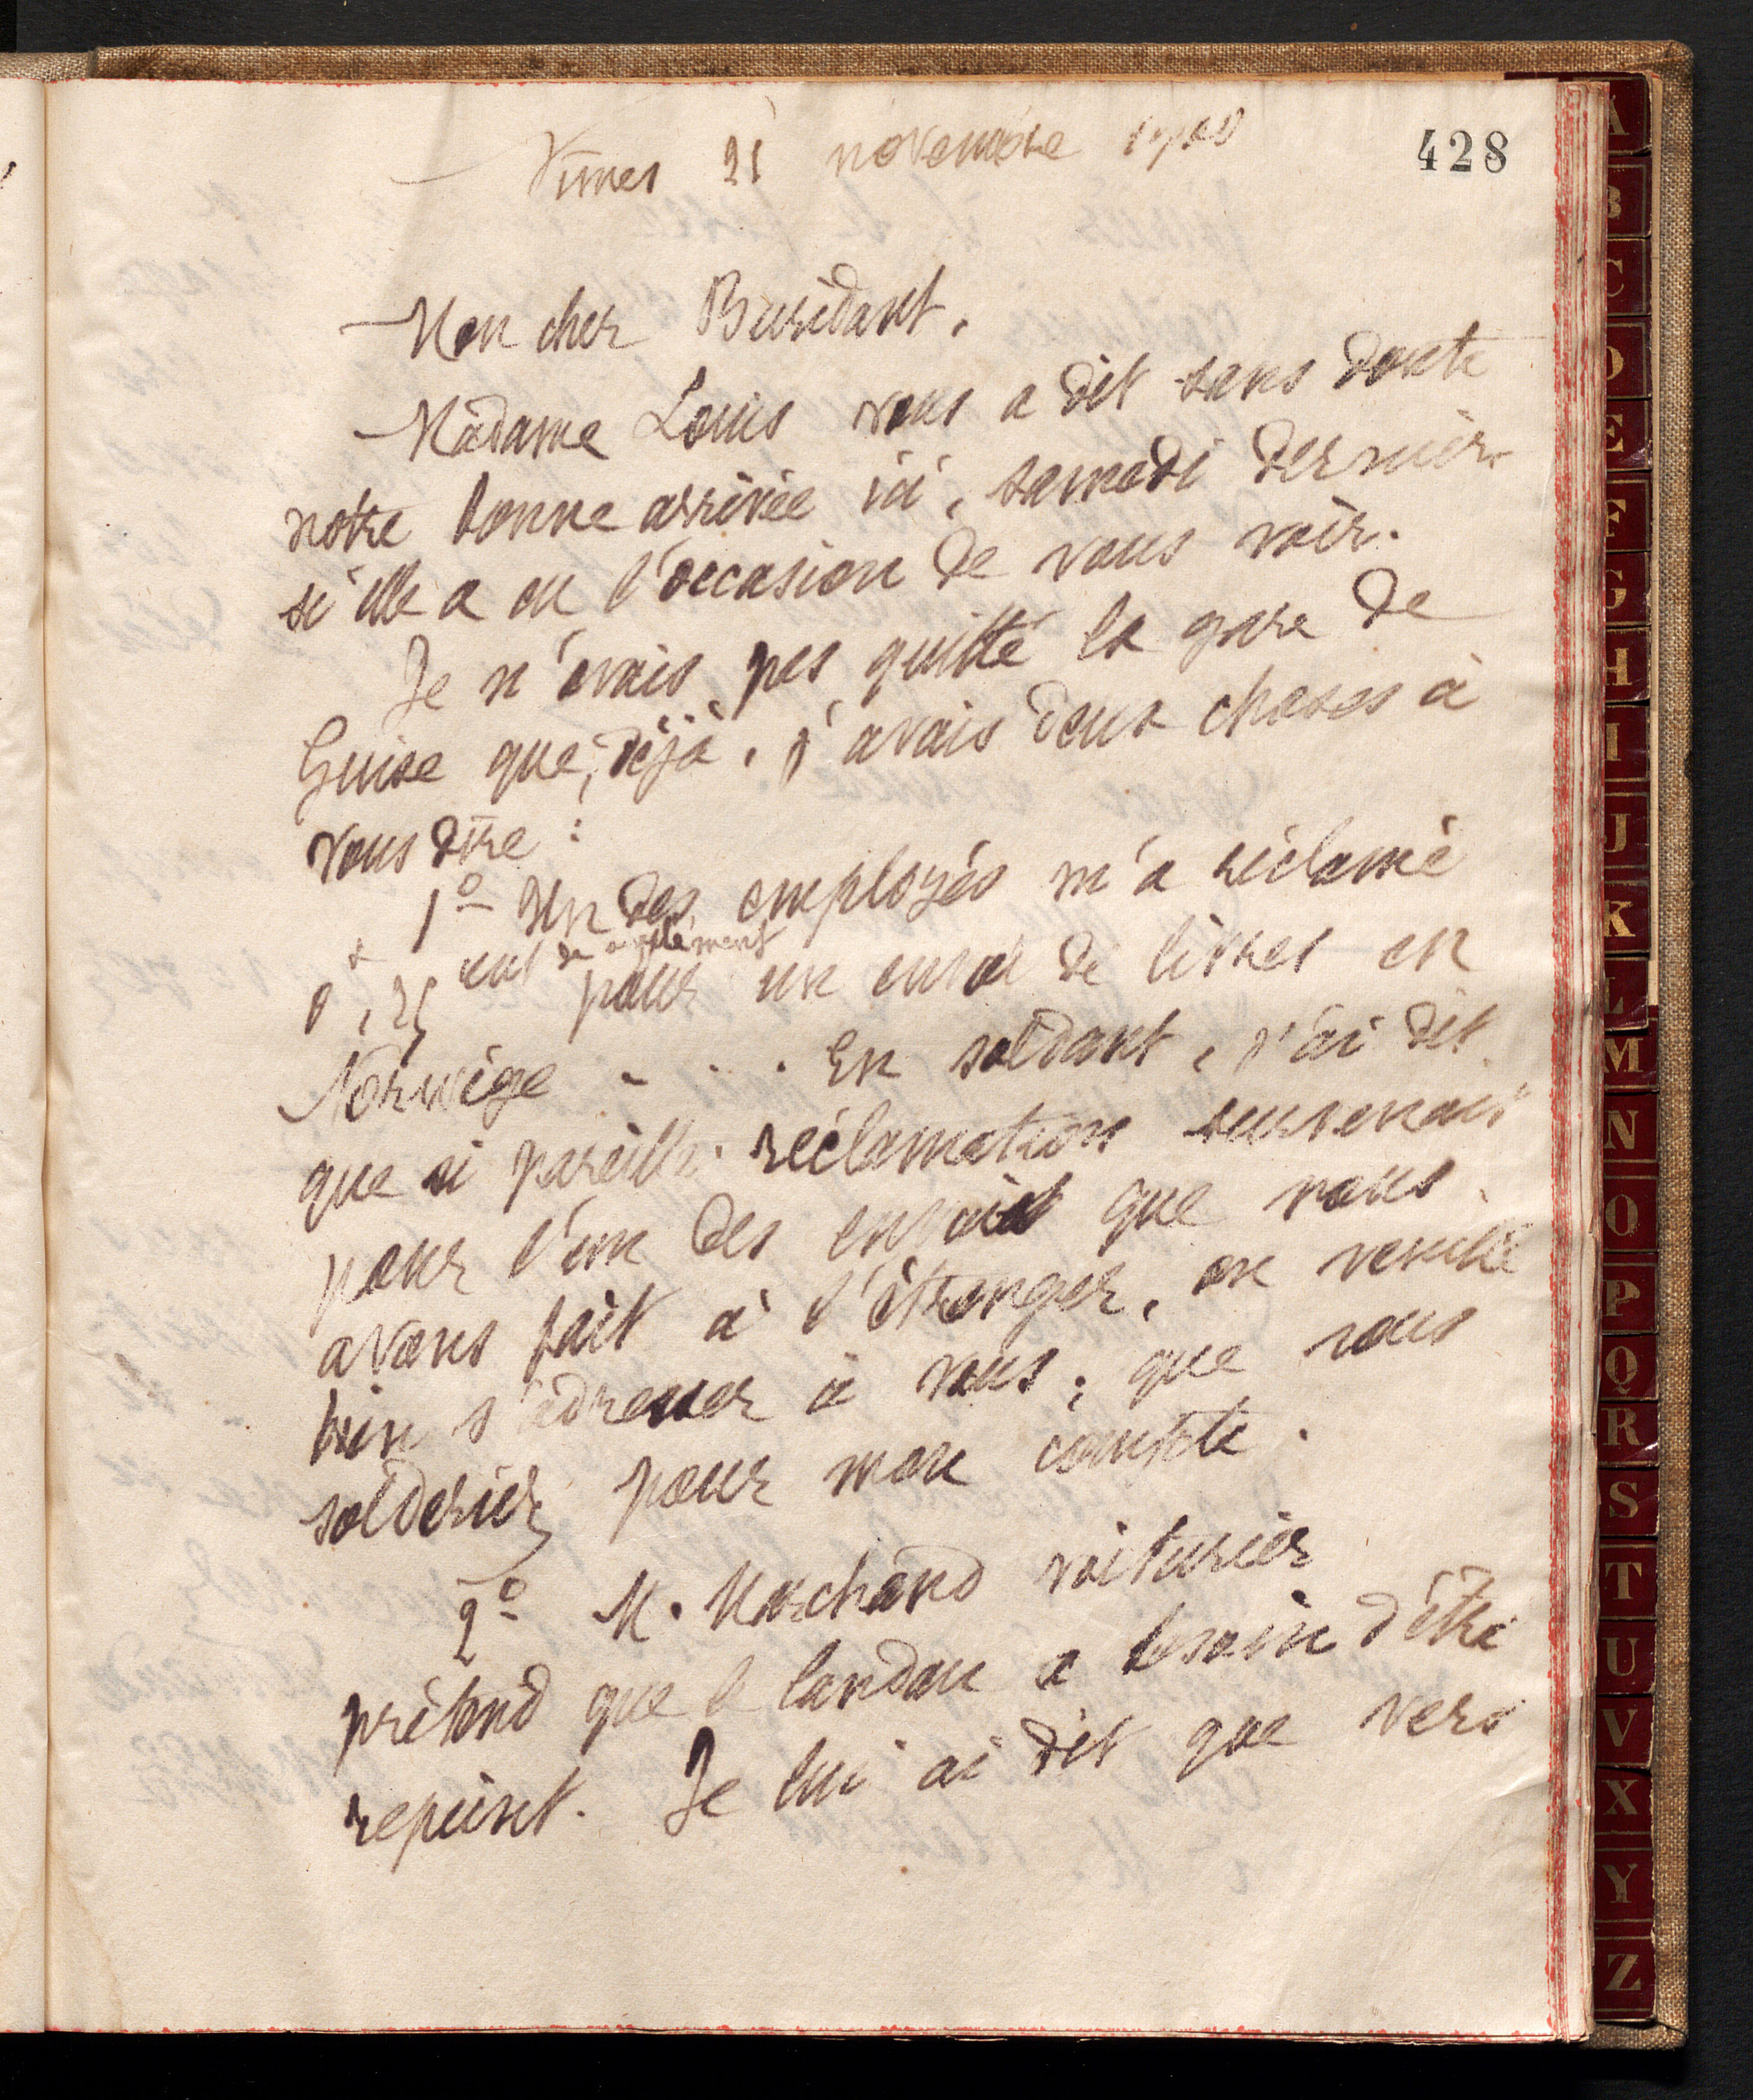 428
Nimes 21 novembre 1900
Mon cher Buridant,
Madame Louis vous a dit sans doute
notre bonne arrivée ici, samedi dernier
si elle a eu l'occasion de vous voir.
Je n'avais pas quitté la gare de
Guise que, déjà, j'avais deux choses à
vous dire :
1º Un des employés m'a réclamé
de supplément
0f,25 pour un envoi de livres en
Norwège . . . En soldant, j'ai dit
que si pareille réclamation survenait
pour l'un des envois que nous
avons fait à l'étranger, on veuille
bien s'adresser à vous ; que vous
solderiez pour mon compte.
2º M. Marchand voiturier
prétend que le landau a besoin d'être
repeint. Je lui ai dit que vers
A
B
C
D
E
F
G
H
I
J
K
L
M
N
O
P
Q
R
S
T
U
V
X
Y
Z